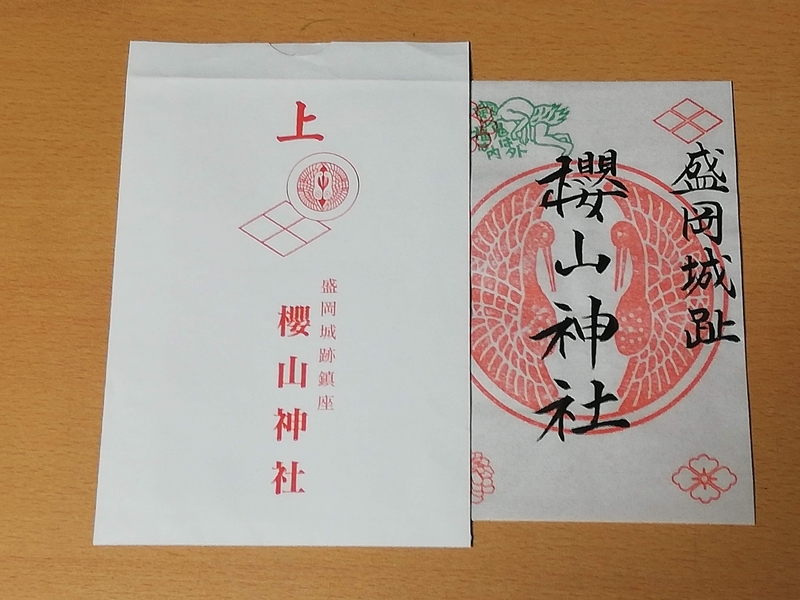 上
盛岡城跡鎮座
櫻山神社
盛岡城趾
櫻山神社
鬼は外